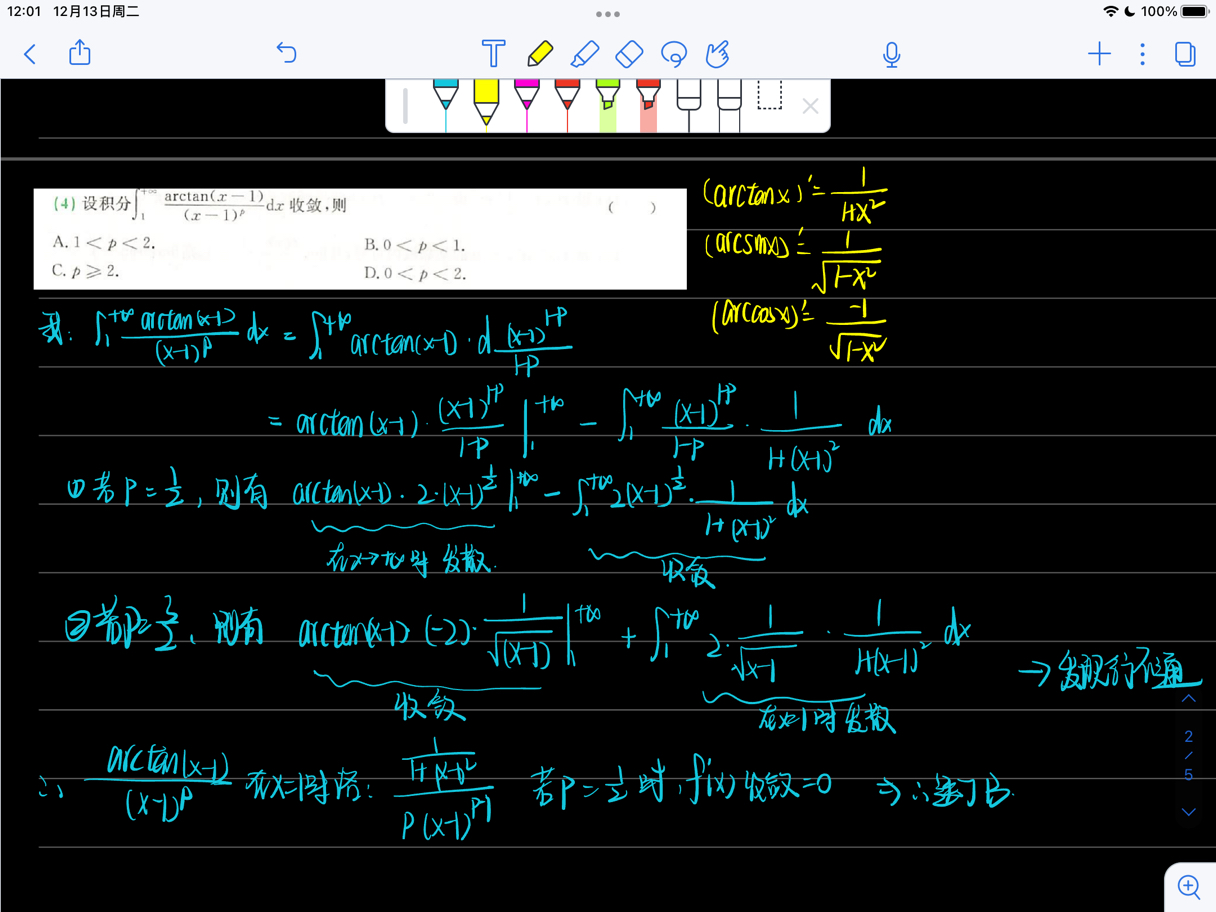 12:01 12月13日周二
100%
(4) 设积分∫₁^{+∞} arctan(x-1)/(x-1)^p dx 收敛,则 ( )
A. 1<p<2. B. 0<p<1.
C. p⩾2. D. 0<p<2.
(arctanx)'=1/(1+x²)
(arcsinx)'=1/√(1-x²)
(arccosx)'=-1/√(1-x²)
我: ∫₁^{+∞} arctan(x-1)/(x-1)^p dx = ∫₁^{+∞} arctan(x-1)·d (x-1)^{1-p}/(1-p)
= arctan(x-1)·(x-1)^{1-p}/(1-p) |₁^{+∞} - ∫₁^{+∞} (x-1)^{1-p}/(1-p) · 1/(1+(x-1)²) dx
① 若P=1/2, 则有 arctan(x-1)·2·(x-1)^{1/2} |₁^{+∞} - ∫₁^{+∞} 2(x-1)^{1/2}· 1/(1+(x-1)²) dx
在x→+∞时 发散. 收敛
② 若P=3/2, 则有 arctan(x-1)(-2)· 1/√(x-1) |₁^{+∞} + ∫₁^{+∞} 2· 1/√(x-1) · 1/(1+(x-1)²) dx
→ 发现行不通
收敛 在x=1时 发散
∴ arctan(x-1)/(x-1)^p 在x=1时 洛: (1/(1+(x-1)²))/(P(x-1)^{p-1}) 若P=1/2时, f(x)收敛=0 ⇒ ∴选了B.
2
/
5